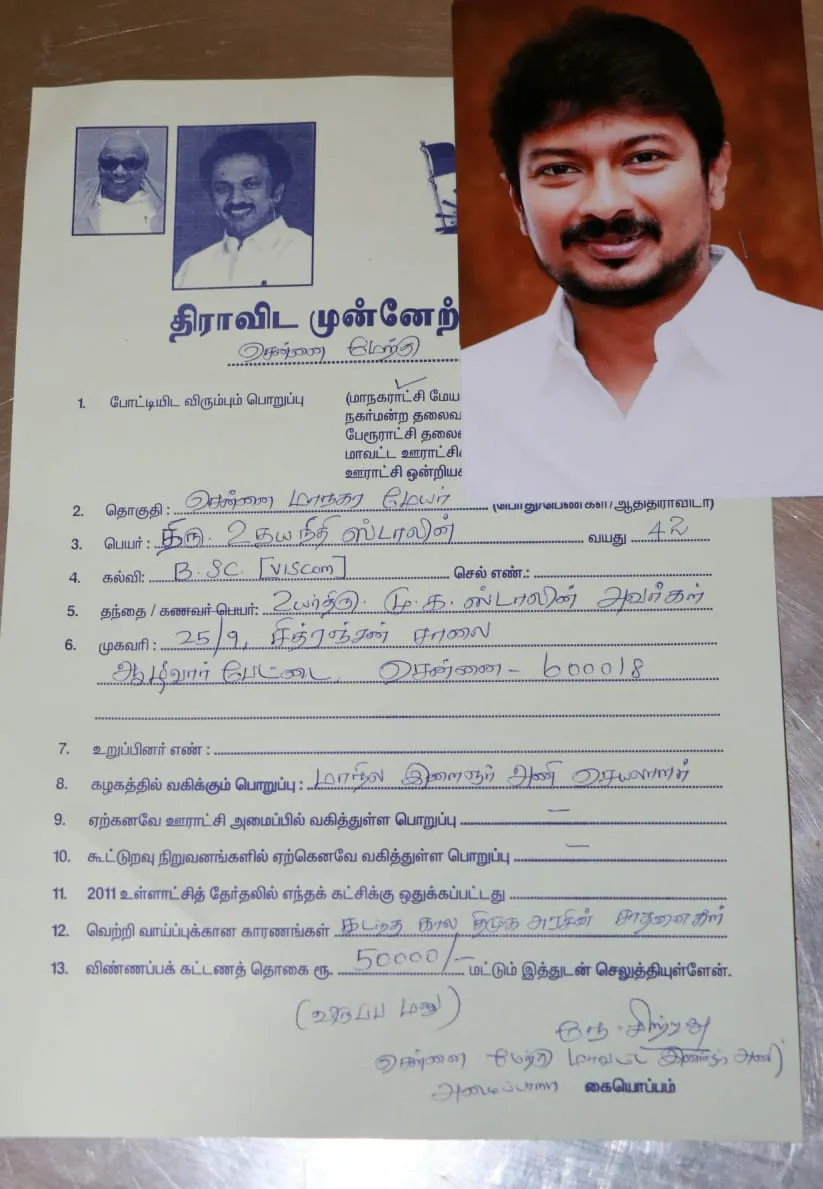 திராவிட முன்னேற்
சென்னை மேற்கு
1. போட்டியிட விரும்பும் பொறுப்பு (மாநகராட்சி மேய
நகர்மன்ற தலைவ
பேரூராட்சி தலை
மாவட்ட ஊராட்சி
ஊராட்சி ஒன்றிய
2. தொகுதி : சென்னை மாநகர மேயர் (பொது/பெண்கள்/ஆதிதிராவிடர்)
3. பெயர் : திரு. உதயநிதி ஸ்டாலின் வயது 42
4. கல்வி: B.SC. [VISCOM] செல் எண்.:
5. தந்தை / கணவர் பெயர்: உயர்திரு. மு.க. ஸ்டாலின் அவர்கள்
6. முகவரி : 25/9, சித்ரஞ்சன் சாலை
ஆழ்வார் பேட்டை, சென்னை - 600018
7. உறுப்பினர் எண் :
8. கழகத்தில் வகிக்கும் பொறுப்பு : மாநில இளைஞர் அணி செயலாளர்
9. ஏற்கனவே ஊராட்சி அமைப்பில் வகித்துள்ள பொறுப்பு —
10. கூட்டுறவு நிறுவனங்களில் ஏற்கெனவே வகித்துள்ள பொறுப்பு —
11. 2011 உள்ளாட்சித் தேர்தலில் எந்தக் கட்சிக்கு ஒதுக்கப்பட்டது
12. வெற்றி வாய்ப்புக்கான காரணங்கள் கடந்த கால திமுக அரசின் சாதனைகள்
13. விண்ணப்பக் கட்டணத் தொகை ரூ. 50000/- மட்டும் இத்துடன் செலுத்தியுள்ளேன்.
(விருப்ப மனு)
சென்னை மேற்கு மாவட்ட அணி
அமைப்பாளர் கையொப்பம்